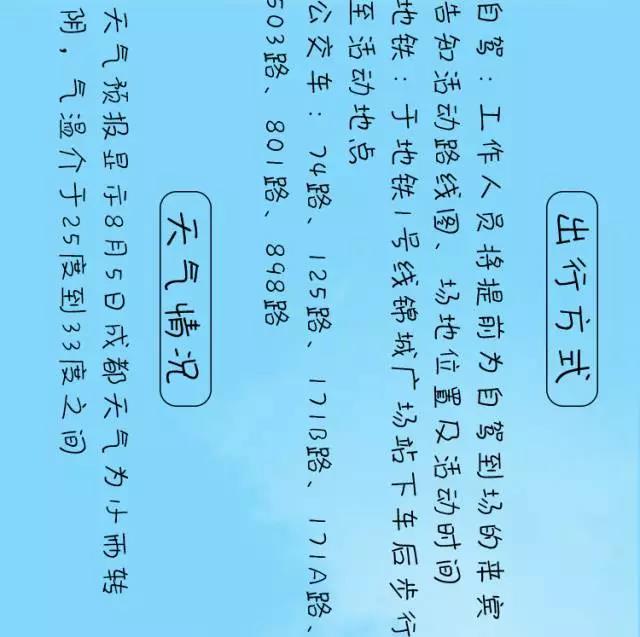 出行方式
自驾：工作人员将提前为自驾到场的来宾
告知活动路线图、场地位置及活动时间
地铁：于地铁1号线锦城广场站下车后步行
至活动地点
公交车：74路、125路、171B路、171A路、
503路、801路、898路
天气情况
天气预报显示8月5日成都天气为小雨转
阴，气温介于25度到33度之间